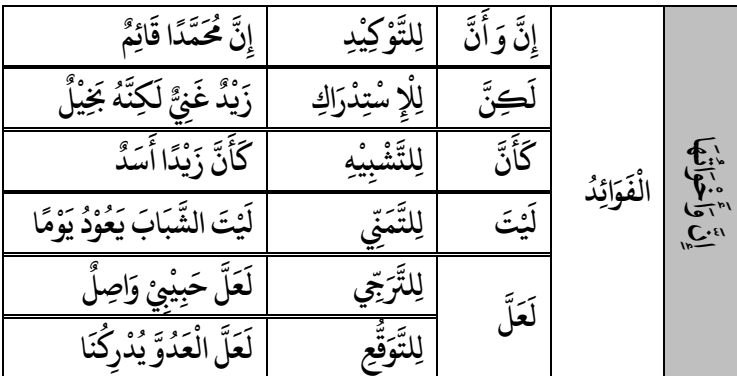 إِنَّ وَأَخْوَاتُهَا
الْفَوَائِدُ
إِنَّ وَ أَنَّ لِلتَّوْكِيْدِ إِنَّ مُحَمَّدًا قَائِمٌ
لَكِنَّ لِلْإِ سْتِدْرَاكِ زَيْدٌ غَنِيٌّ لَكِنَّهُ بَخِيْلٌ
كَأَنَّ لِلتَّشْبِيْهِ كَأَنَّ زَيْدًا أَسَدٌ
لَيْتَ لِلتَّمَنِّي لَيْتَ الشَّبَابَ يَعُوْدُ يَوْمًا
لَعَلَّ لِلتَّرَجِّي لَعَلَّ حَبِيْبِيْ وَاصِلٌ
لِلتَّوَقُّعِ لَعَلَّ الْعَدُوَّ يُدْرِكُنَا